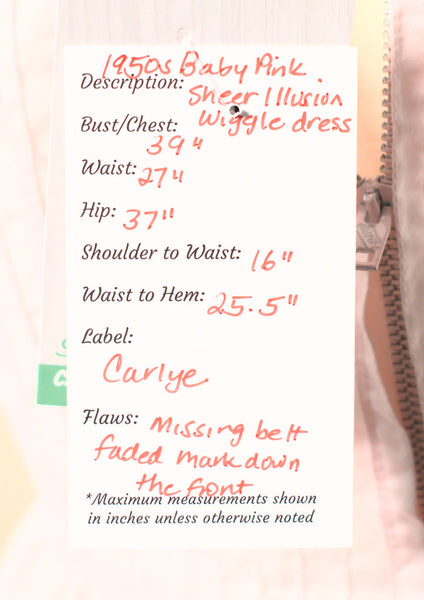 1950s Baby Pink
Description: Sheer Illusion
Bust/Chest: Wiggle dress
39"
Waist: 27"
Hip: 37"
Shoulder to Waist: 16"
Waist to Hem: 25.5"
Label:
Carlye
Flaws: Missing belt
faded mark down
the front
*Maximum measurements shown
in inches unless otherwise noted